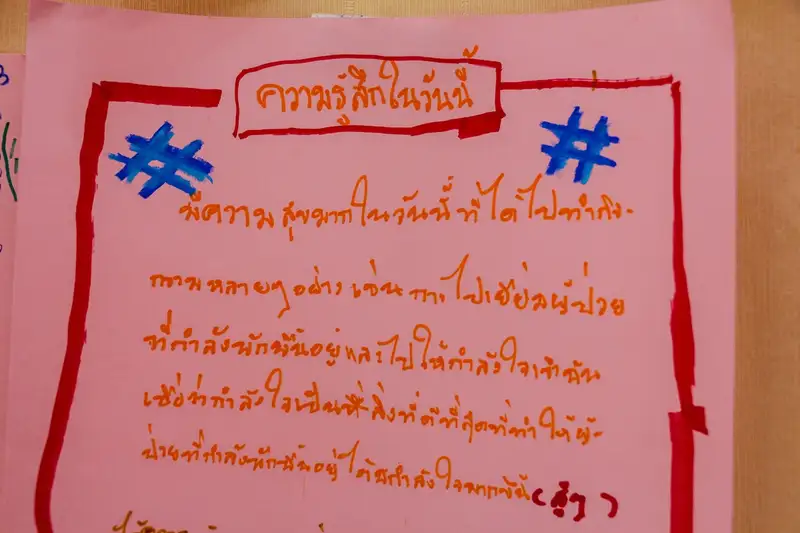 ความรู้สึกในวันนี้
# #
มีความสุขมากในวันนี้ ที่ได้ไปทำกิจ-
กรรมหลายๆอย่าง เช่นการไปเยี่ยมผู้ป่วย
ที่กำลังพักฟื้นอยู่และไปให้กำลังใจเขาฉัน
เชื่อว่ากำลังใจเป็นสิ่งที่ดีที่สุดที่ทำให้ผู้-
ป่วยที่กำลังพักฟื้นอยู่ได้มีกำลังใจมากขึ้น(สู้ๆ)